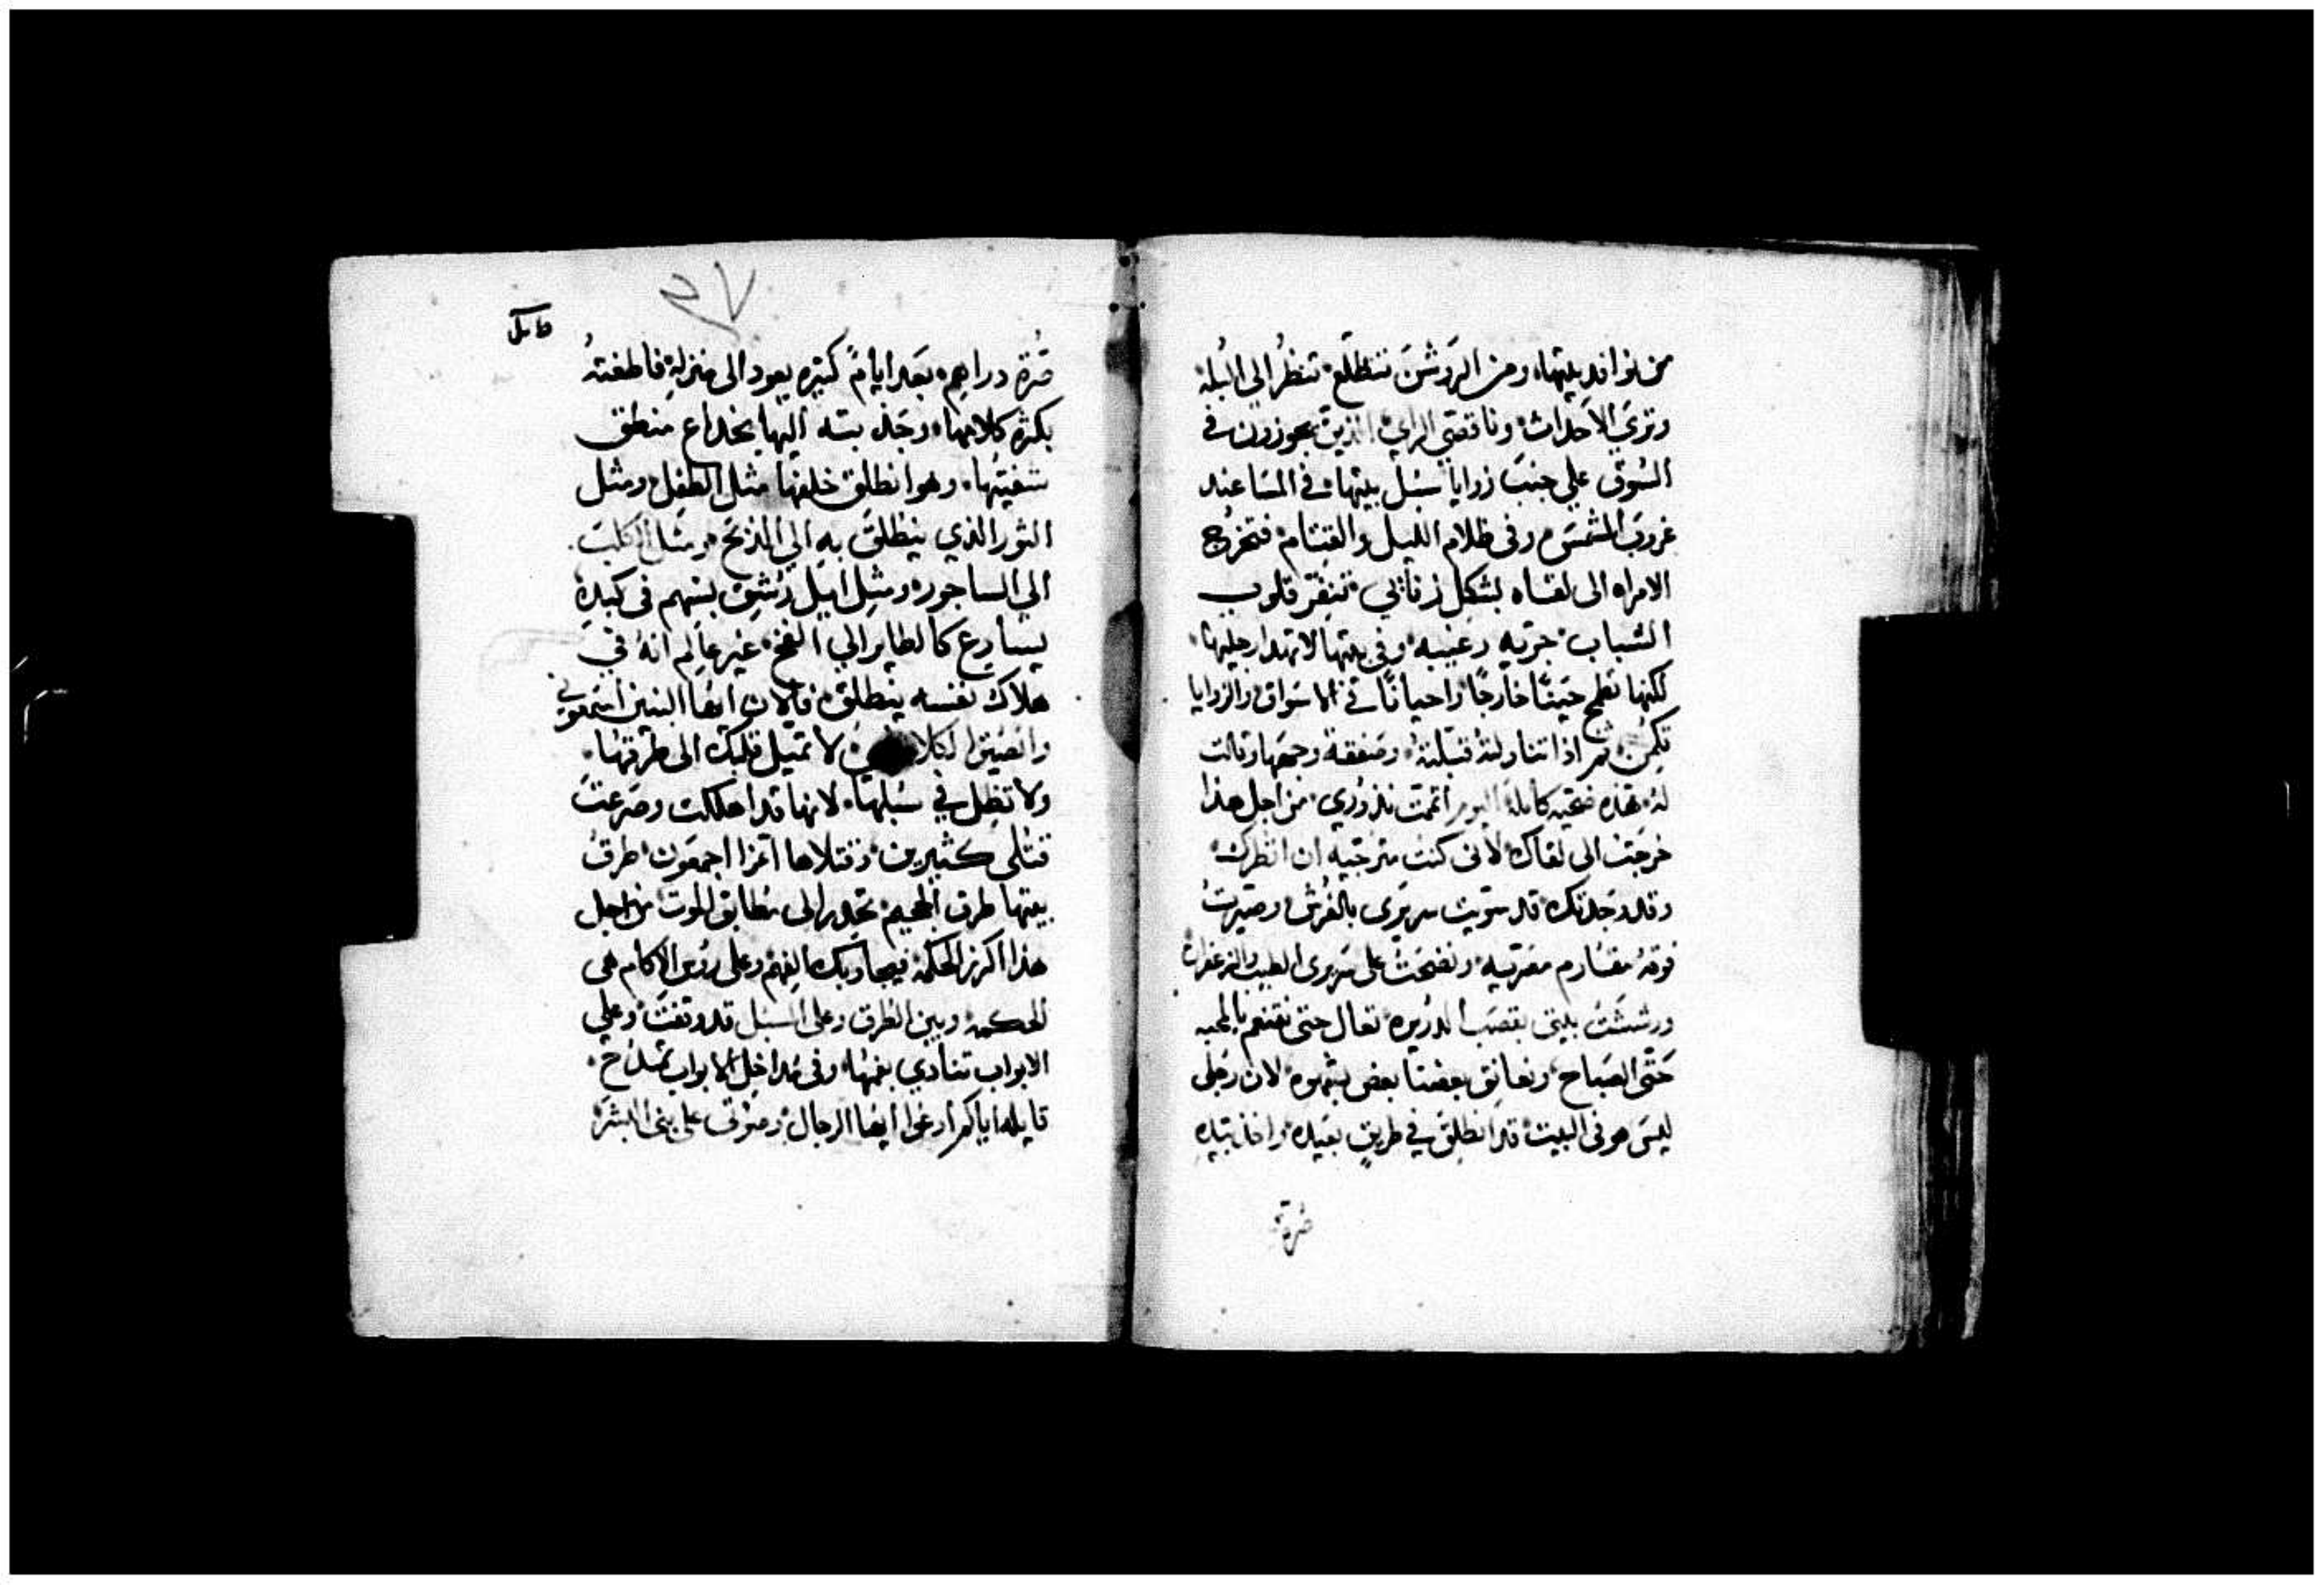 من نوافد بيتها ومن الروشن تتطلع تنظر الى البله
وترى الاحداث وناقصي الراي الذين يجوزون في
السوق على جنب زوايا سبل بيتها في المسا عند
غروب الشمس وفى ظلام الليل والقتام فتخرج
الامراه الى لقاه بشكل زناني تنفر قلوب
الشباب جريه وفى بيتها لا تهدا رجليها
لكنها تطمح حينًا خارجًا واحيانًا في الاسواق والزوايا
تكمن ثم اذا تناولته قبلته وجهها وقالت
له هذه كامله اليوم اتممت نذوري من اجل هذا
خرجت الى لقاك لانى كنت مترجيه ان انظرك
وقد وجدتك قد سويت سريرى بالفرش وصيرت
فوقه ونضحت على سريرى الطيب والزعفران
ورششت بيتى بقصب الدريره تعال حتى نتنعم بالمحبه
حتى الصباح ونعانق بعضنا بعض بشهوه لان رجلى
ليس هو فى البيت قد انطلق في طريق بعيده واخذ بيده
صرة
صرة دراهم بعد ايام كثيره يعود الى منزله فاطغته
بكثرة كلامها وجذبته اليها بخداع منطق
شفتيها وهو انطلق خلفها مثل الطفل ومثل
الثور الذي ينطلق به الي المذبح ومثل الكلب
الي الساجور ومثل ايل رشق بسهم فى كبده
يسارع كالطاير الي الفخ غير عالم انه في
هلاك نفسه ينطلق فالان ايها البنين استمعوني
وانصتوا لكلا لا تميل قلبك الى طرقها
ولا تظل في سبلها لانها قد اهلكت وصرعت
قتلى كثيرين وقتلاها اعزا اجمعون طرق
بيتها طرق الجحيم تحدر الى مطابق الموت من اجل
هذا اكرز الحكمه فيجاوبك الفهم وعلى روس الاكام هى
الحكمه وبين الطرق وعلى السبل قد وقفت وعلي
الابواب تنادي بفمها وفى مداخل الابواب تمدح
قايله اياكم ادعوا ايها الرجال وصوتى على بنى البشر